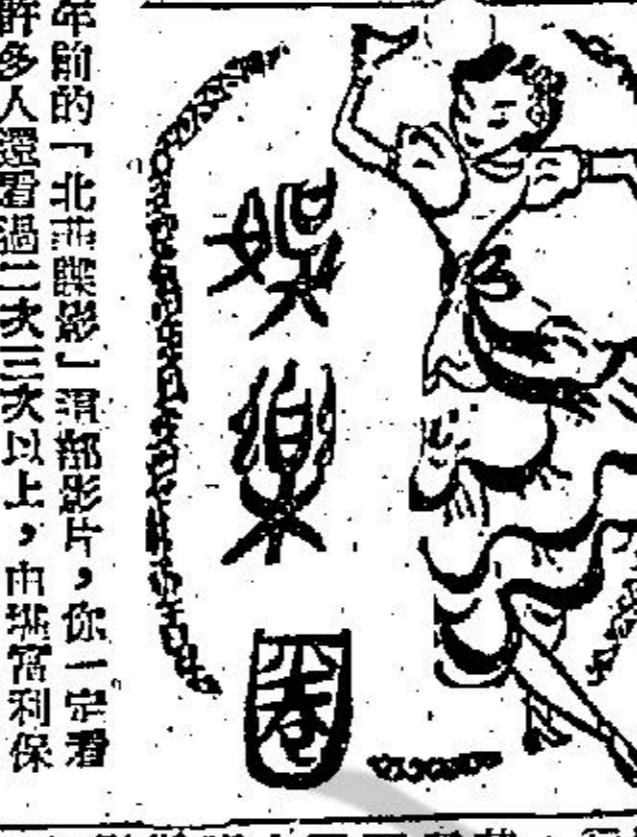 年前的「北非諜影」這部影片，你一定看
許多人還看過二次三次以上，由堪富利保
娛樂圈